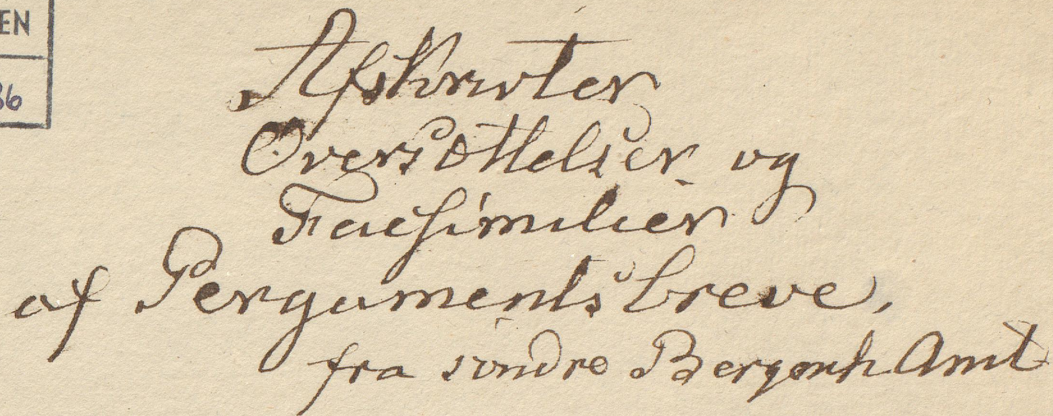 EN
36
Afskrivter
Oversættelser og
Facsimilier
af Pergamentsbreve,
fra søndre Bergenh Amt